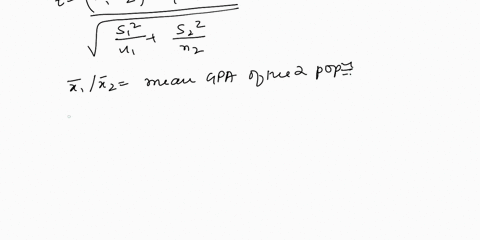 S₁² / n₁ + S₂² / n₂
x̄₁ / x̄₂ = mean GPA of the 2 pop